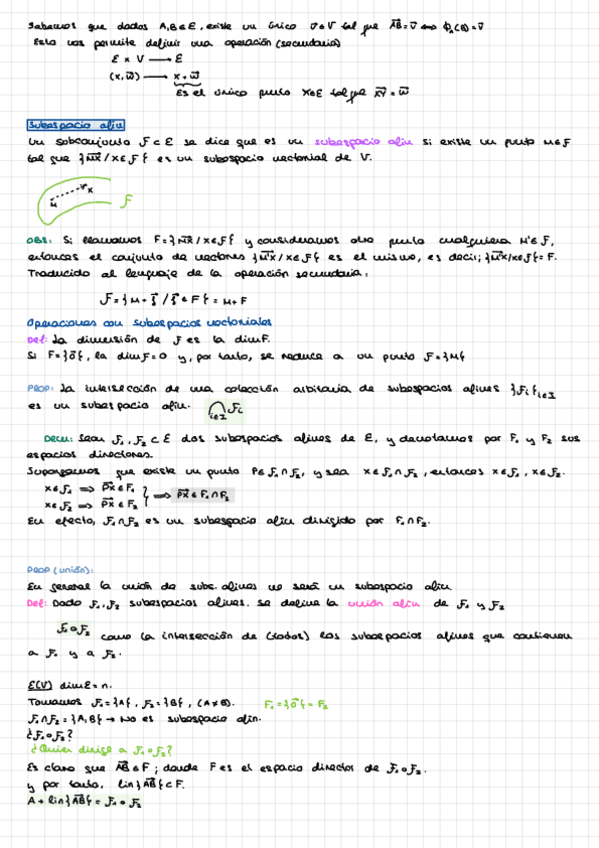 Sabemos que dados A,B∈E, existe un único v⃗∈V tal que AB⃗=v⃗ ⟺ Φ_A(B)=v⃗
Esto nos permite definir una operación (secundaria)
E × V ⟶ E
(x, w⃗) ⟶ x + w⃗
Es el único punto Y∈E tal que XY⃗ = w⃗
Subespacio afín
Un subconjunto F ⊂ E se dice que es un subespacio afín si existe un punto M∈F
tal que {MX⃗ / X∈F} es un subespacio vectorial de V.
M X F
OBS: Si llamamos F={MX⃗ / X∈F} y consideramos otro punto cualquiera M'∈F,
entonces el conjunto de vectores {M'X⃗ / X∈F} es el mismo, es decir, {M'X⃗/X∈F}=F.
Traducido al lenguaje de la operación secundaria:
F = {M + ξ⃗ / ξ⃗ ∈ F} = M + F
Operaciones con subespacios vectoriales
Def: La dimensión de F es la dim F.
Si F={0⃗}, la dim F=0 y, por tanto, se reduce a un punto F={M}
PROP: La intersección de una colección arbitraria de subespacios afines {Fi}i∈I
es un subespacio afín. ⋂i∈I Fi
Dem: Sean F₁,F₂ ⊂ E dos subespacios afines de E, y denotamos por F₁ y F₂ sus
espacios directores.
Supongamos que existe un punto P∈F₁∩F₂, y sea X∈F₁∩F₂, entonces X∈F₁, X∈F₂.
X∈F₁ ⟹ PX⃗∈F₁
X∈F₂ ⟹ PX⃗∈F₂ } ⟹ PX⃗∈F₁∩F₂
En efecto, F₁∩F₂ es un subespacio afín dirigido por F₁∩F₂.
PROP (unión):
En general la unión de subs. afines no será un subespacio afín
Def: Dado F₁,F₂ subespacios afines. Se define la unión afín de F₁ y F₂
F₁∘F₂ como la intersección de (todos) los subespacios afines que contienen
a F₁ y a F₂.
E(V) dim E = n.
Tomamos F₁={A}, F₂={B}, (A≠B). F₁={0⃗}=F₂
F₁∩F₂={A,B} → No es subespacio afín.
¿F₁∘F₂?
¿Quien dirige a F₁∘F₂?
Es claro que AB⃗∈F; donde F es el espacio director de F₁∘F₂.
y por tanto, lin{AB⃗}⊂F.
A + lin{AB⃗} = F₁∘F₂